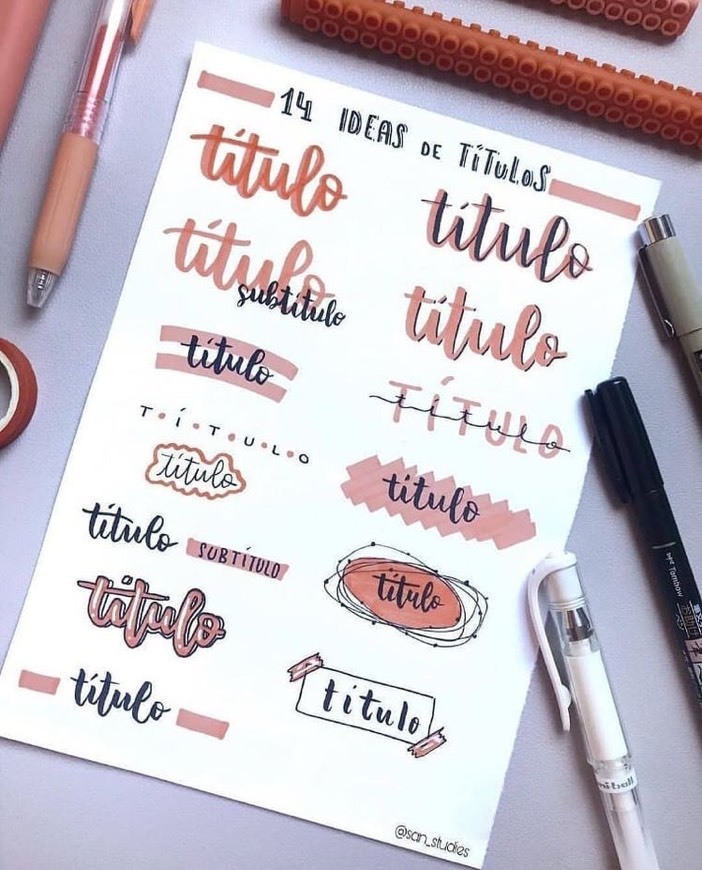 14 IDEAS DE TÍTULOS
título
título
subtítulo
título
T·Í·T·U·L·O
título
título SUBTÍTULO
título
título
título
título
TÍTULO
título
título
título
título
@san_studies
Tombow